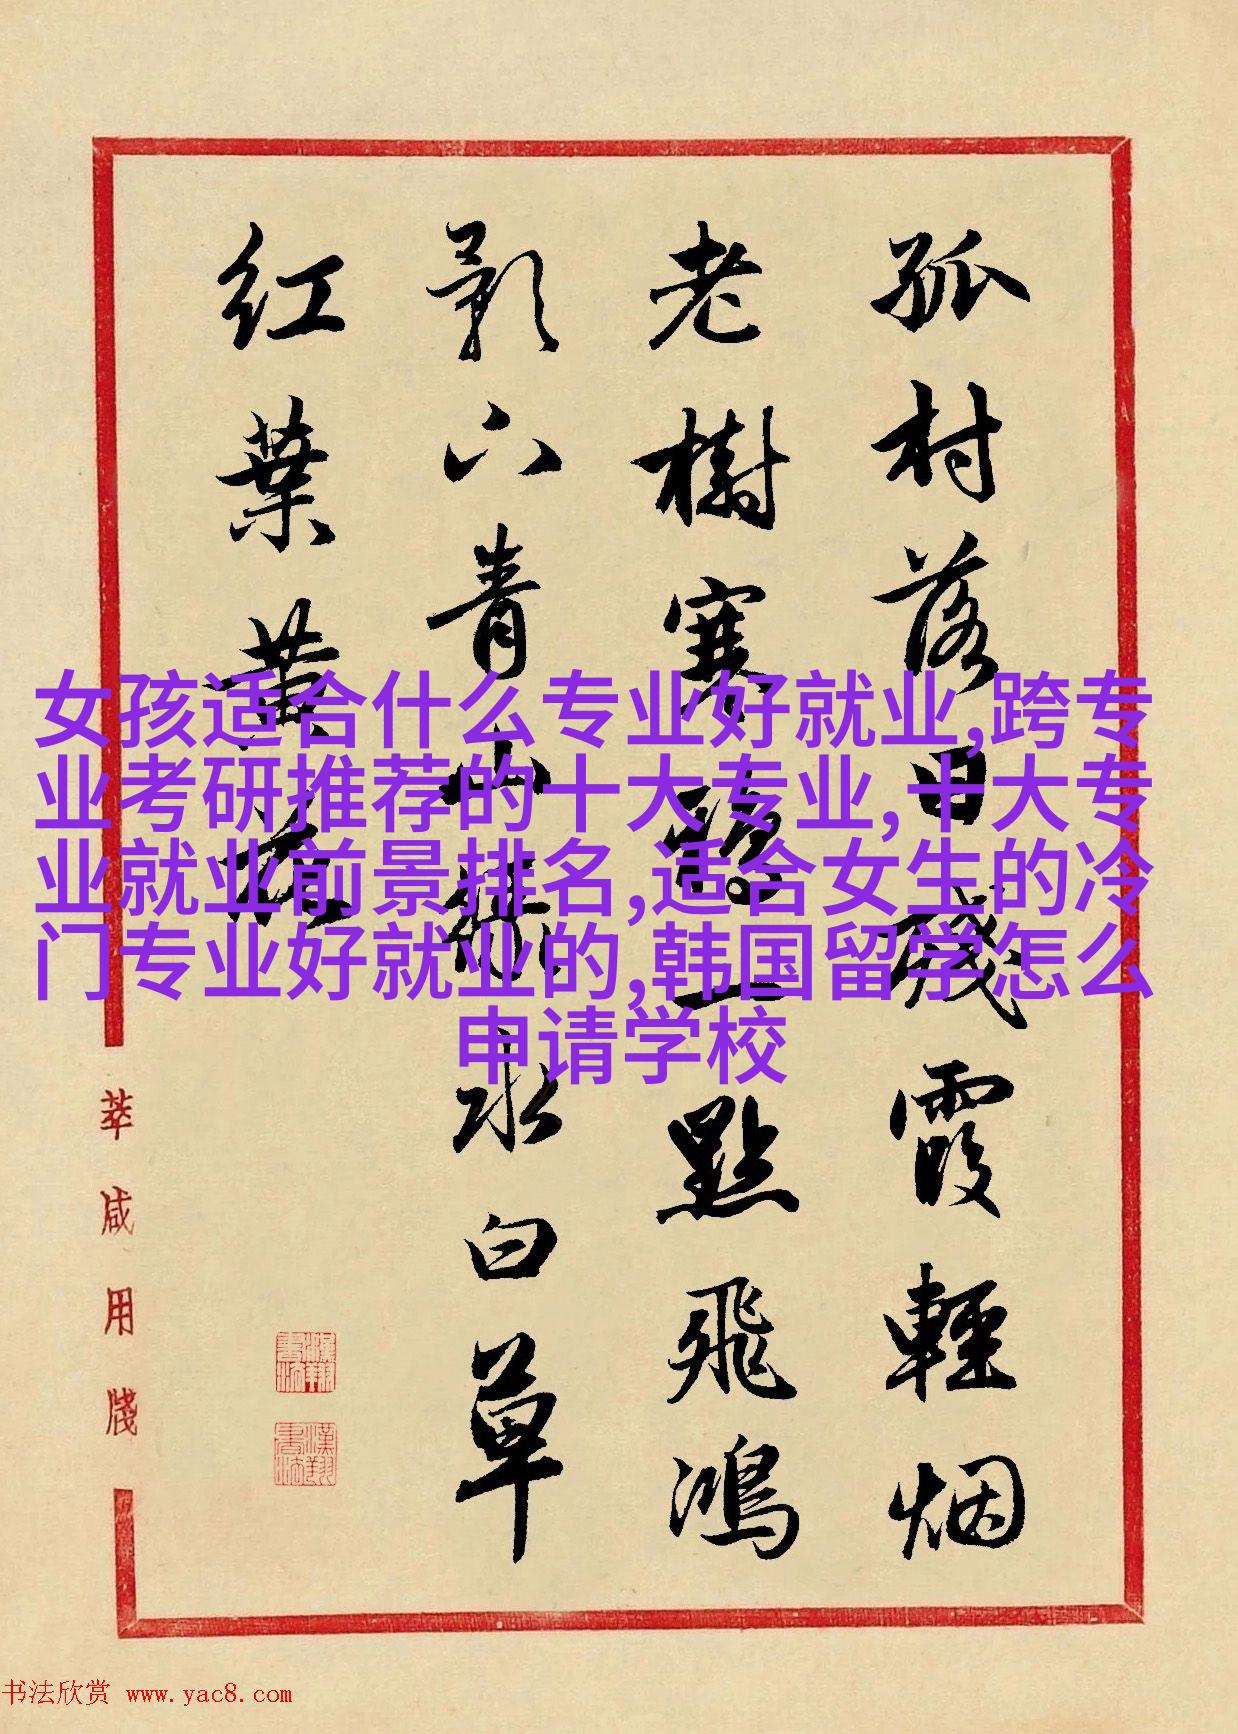 孤村落日殘霞輕烟
老樹寒鴉一點飛鴻
影下青山綠水白草
紅葉黃花
女孩适合什么专业好就业,跨专
业考研推荐的十大专业,十大专
业就业前景排名,适合女生的冷
门专业好就业的,韩国留学怎么
申请学校
萃咸用牋
漢翔書法
漢翔書法
书法欣赏 www.yac8.com